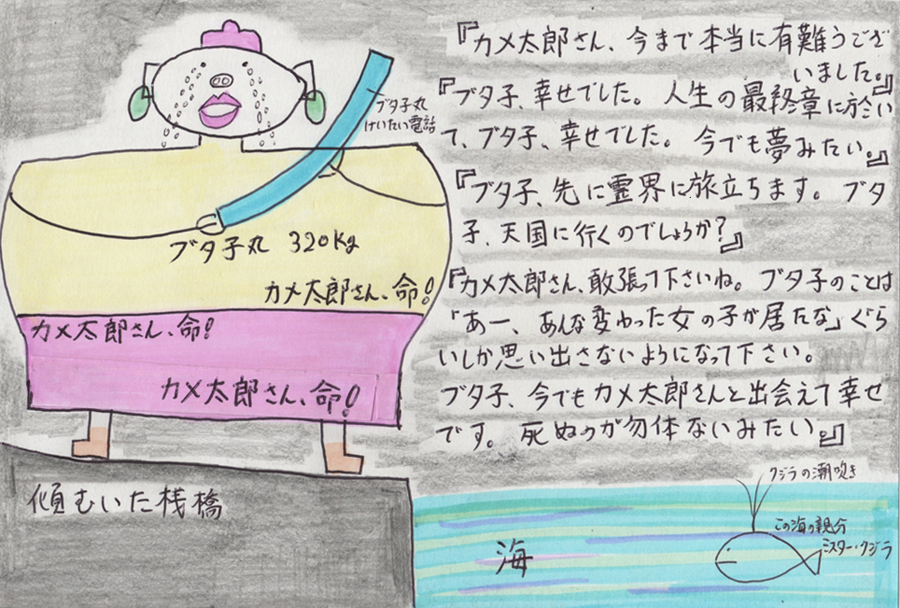 『カメ太郎さん、今まで本当に有難うござ
いました。』
『ブタ子、幸せでした。人生の最終章に於い
て、ブタ子、幸せでした。今でも夢みたい。』
『ブタ子、先に霊界に旅立ちます。ブタ
子、天国に行くのでしょうか?』
『カメ太郎さん、敢張って下さいね。ブタ子のことは
「あー、あんな変わった女の子が居たな」ぐら
いしか思い出さないようになって下さい。
ブタ子、今でもカメ太郎さんと出会えて幸せ
です。死ぬのが勿体ないみたい。』
ブタ子丸
けいたい電話
ブタ子丸 320kg
カメ太郎さん、命!
カメ太郎さん、命!
カメ太郎さん、命!
傾むいた桟橋
海
クジラの潮吹き
この海の親分
ミスター・クジラ